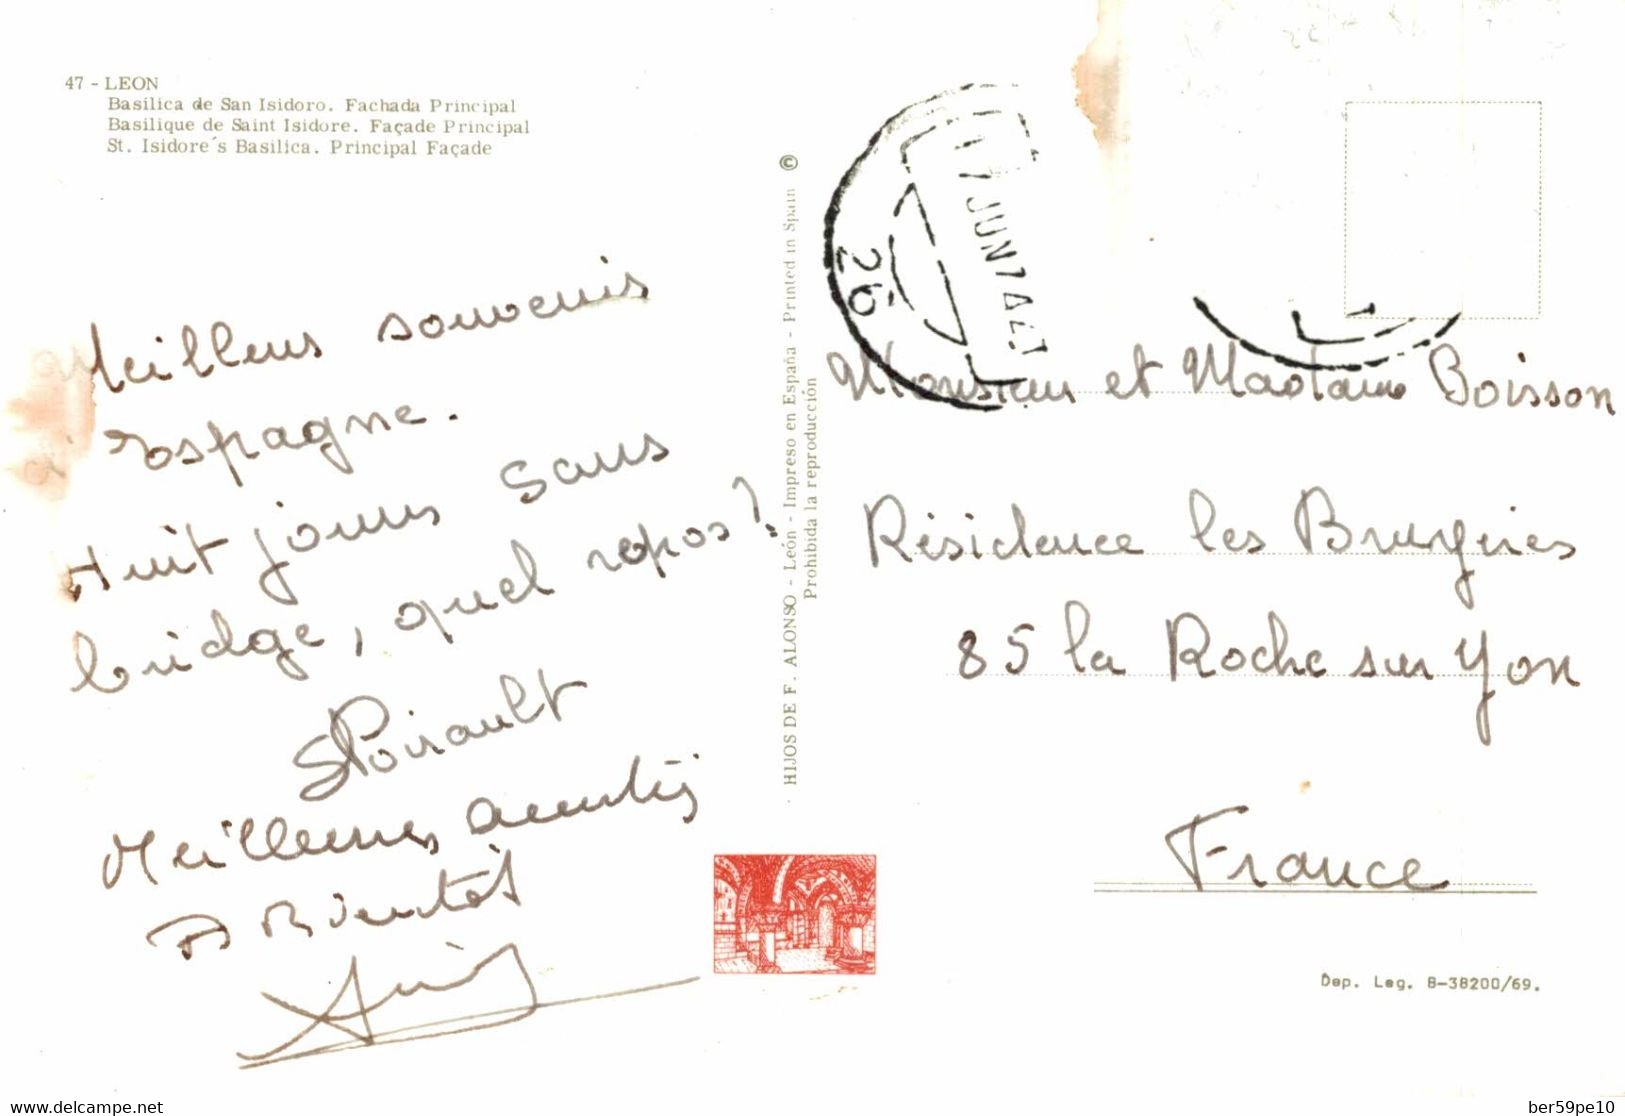 47 - LEON
Basilica de San Isidoro. Fachada Principal
Basilique de Saint Isidore. Façade Principal
St. Isidore´s Basilica. Principal Façade
Meilleurs souvenirs
d'Espagne.
Huit jours sans
bridge, quel repos!
Poirault
Meilleures amitiés
A Bientôt
HIJOS DE F. ALONSO - León - Impreso en España - Printed in Spain ©
Prohibida la reproducción
17 JUN 74
26
Monsieur et Madame Boisson
Résidence les Bruyères
85 la Roche sur Yon
France
Dep. Leg. B-38200/69.
delcampe.net
ber59pe10